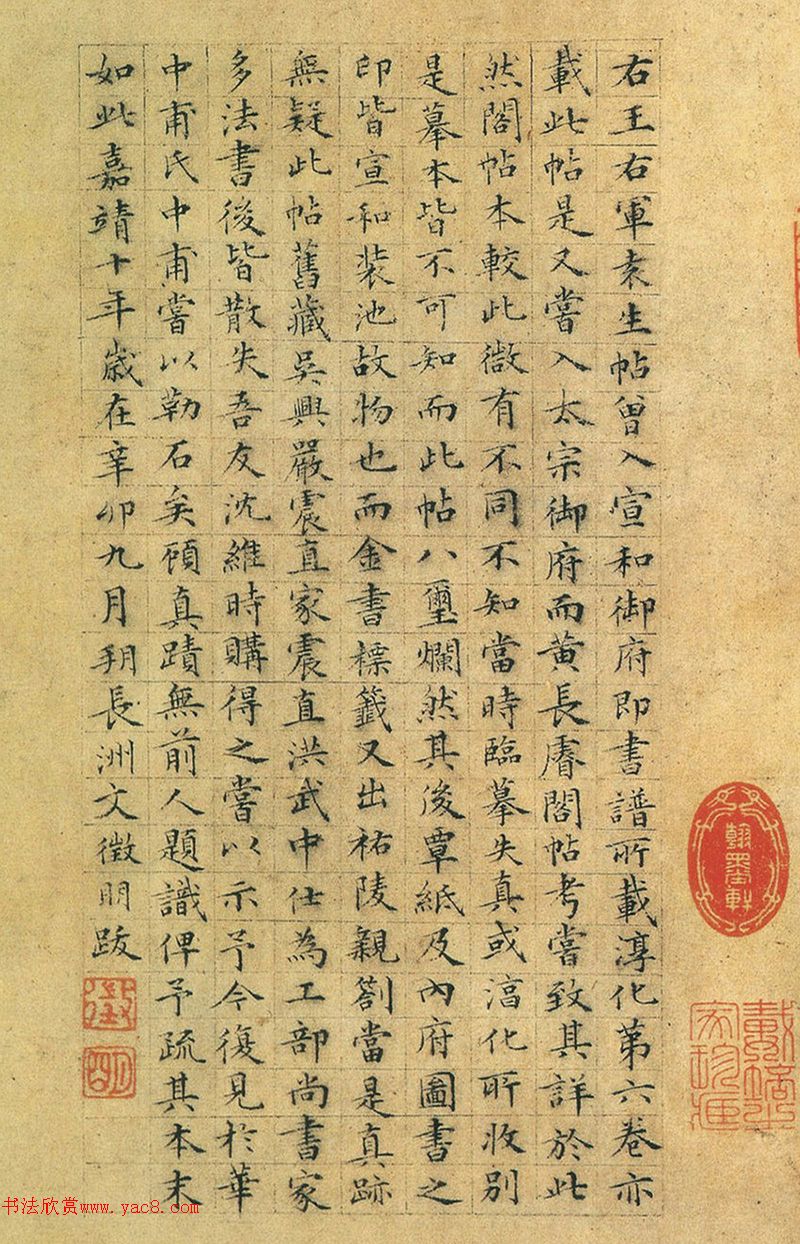 右王右軍袁生帖曾入宣和御府即書譜所載淳化第六卷亦
載此帖是又嘗入太宗御府而黃長睿閣帖考嘗致其詳於此
然閣帖本較此微有不同不知當時臨摹失真或淳化所收別
是摹本皆不可知而此帖八璽爛然其後覃紙及內府圖書之
印皆宣和裝池故物也而金書標籤又出祐陵親劄當是真跡
無疑此帖舊藏吳興嚴震直家震直洪武中仕為工部尚書家
多法書後皆散失吾友沈維時購得之嘗以示予今復見於華
中甫氏中甫嘗以勒石矣顧真蹟無前人題識俾予疏其本末
如此嘉靖十年歲在辛卯九月朔長洲文徵明跋
徵
明
翰墨軒
家珍藏
书法欣赏www.yac8.com